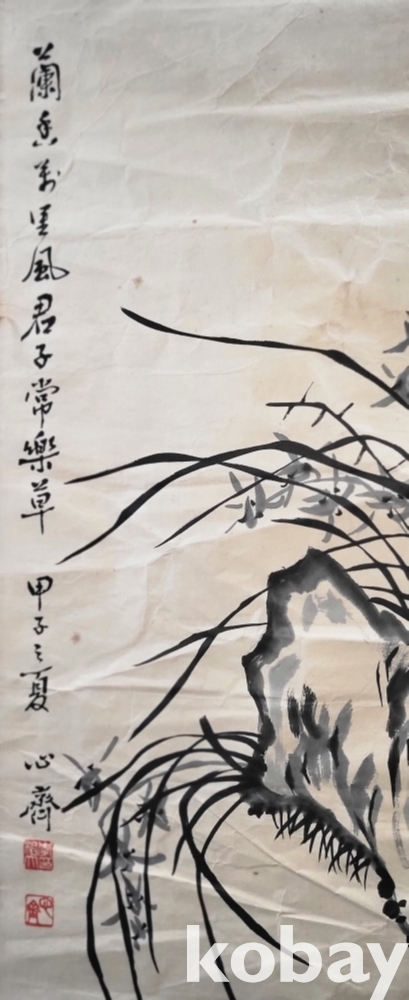 蘭香萬里風君子常樂草
甲子之夏
心齋
kobay